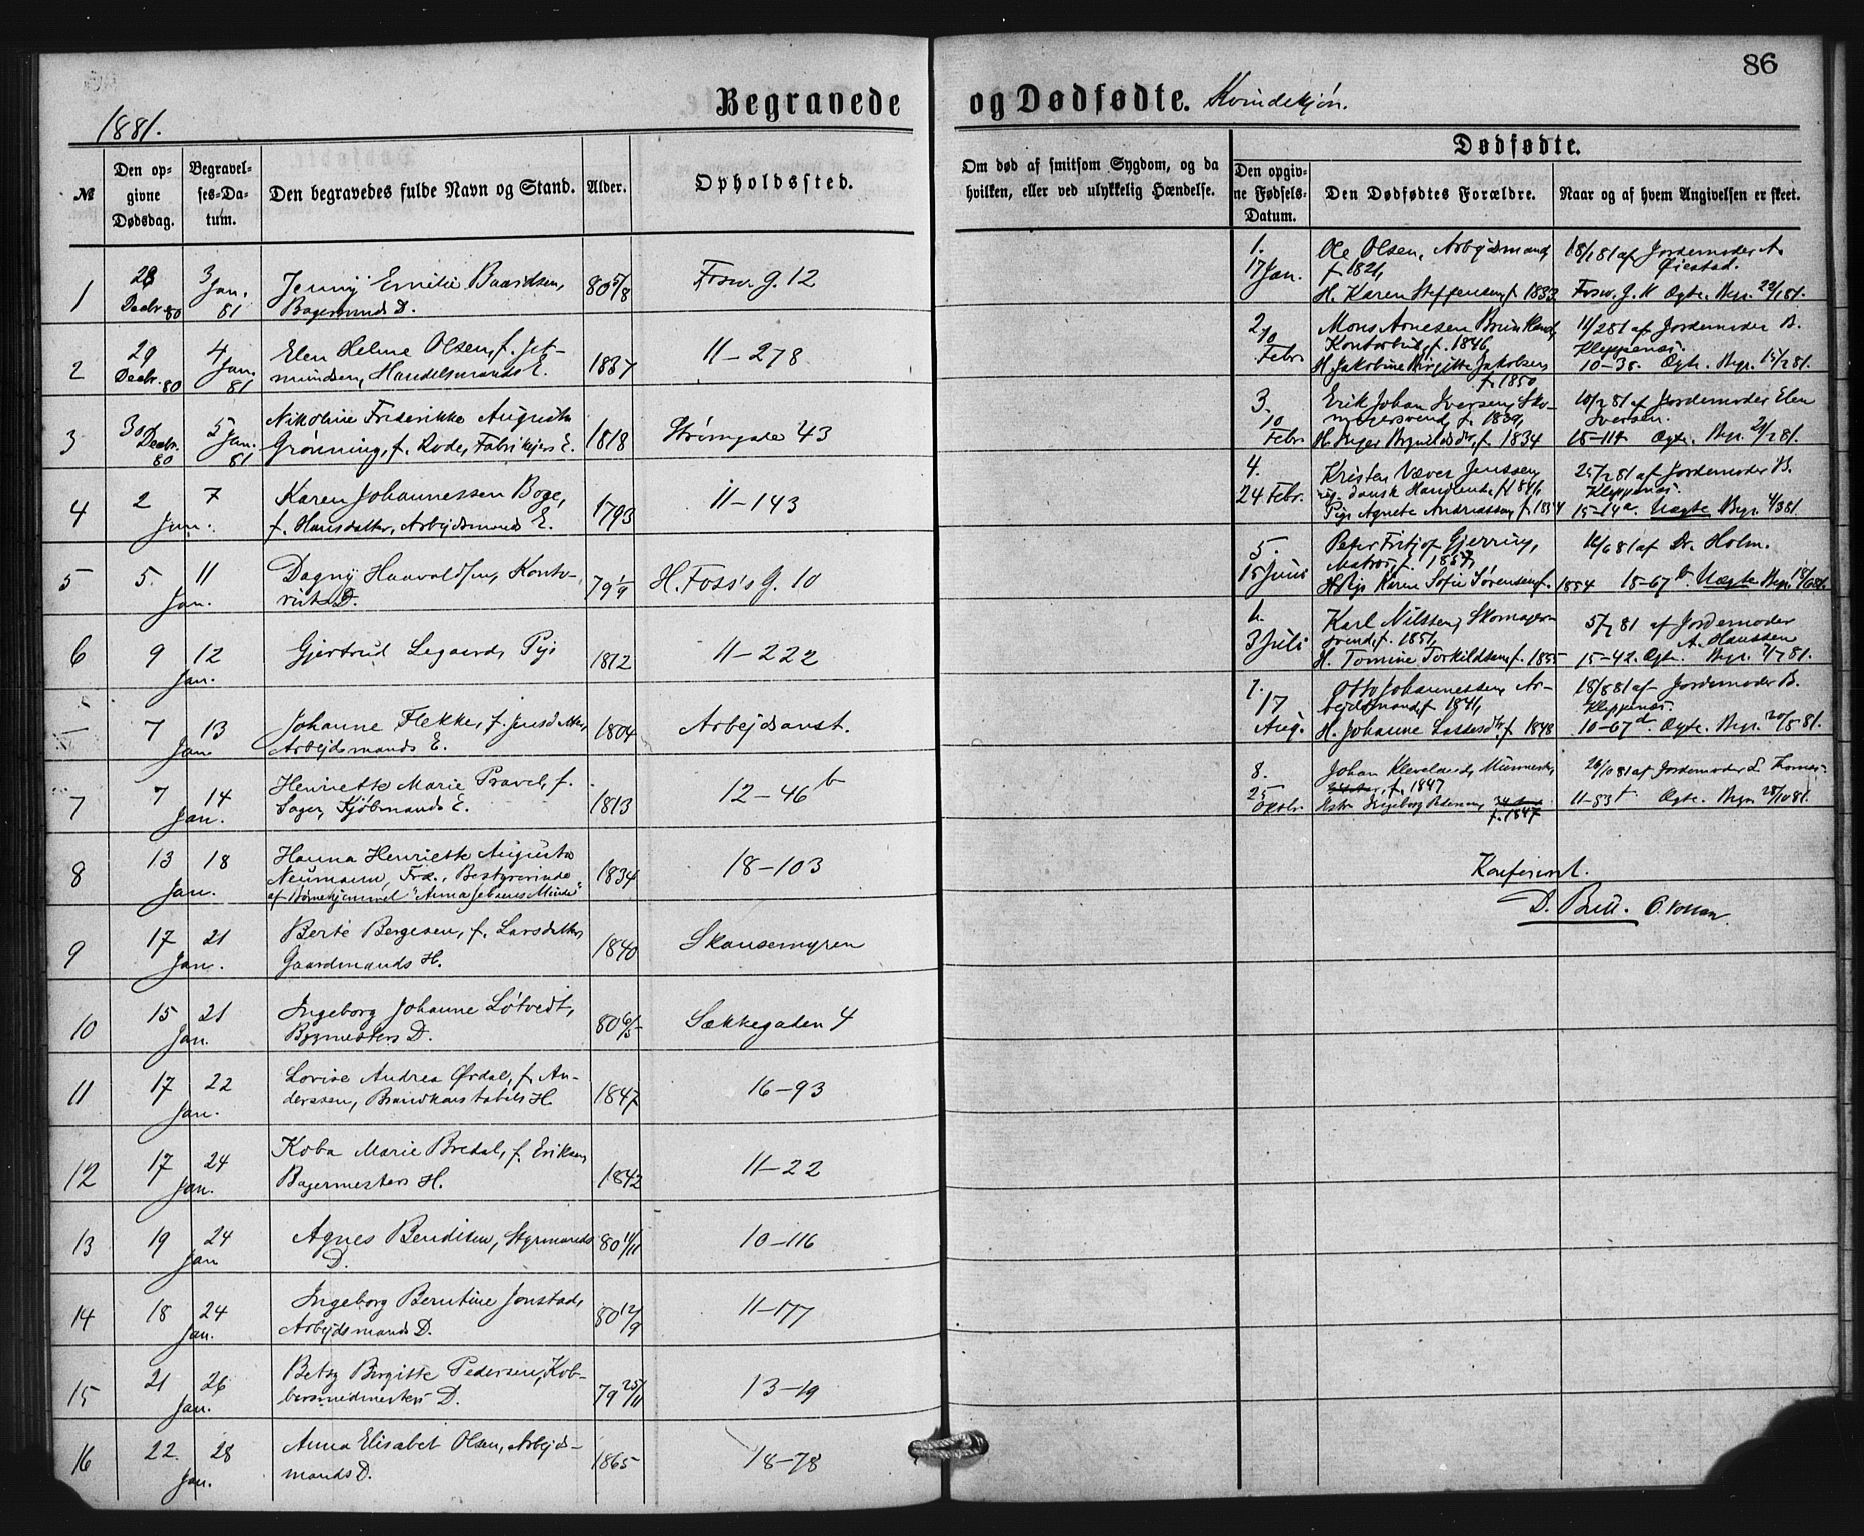 86
Begravede og Dødfødte. Kvindekjøn.
1881.
№
Den opgivne Dødsdag.
Begravelses-Datum.
Den begravedes fulde Navn og Stand.
Alder.
Opholdssted.
Om død af smitsom Sygdom, og da hvilken, eller ved ulykkelig Hændelse.
Dødfødte.
Den opgivne Fødsels-Datum.
Den Dødfødtes Forældre.
Naar og af hvem Angivelsen er skeet.
1 28 Decbr. 80 3 Jan. 81 Jenny Emilie Baardsen, 80 5/8 Fosw. g. 12
Bagersvends D.
2 29 Decbr. 80 4 Jan. 81 Elen Helene Olsen, f. 1837 11-278
mundsen, Handelsmands E.
3 30 Decbr. 80 5 Jan. 81 Nikoline Frederikke Augusta
Grønning, f. Rode, Fabrikeiers E. 1818 Strømgaden 43
4 2 Jan. 7 Karen Johannessen Boge, 1793 11-143
f. Hansdatter, Arbeidsmands E.
5 5. Jan. 11 Dagny Haavoldsen, Konto- 79 1/9 H. Foss's G. 10
rist D.
6 9 Jan. 12 Gjertrud Legaard, Pige 1812 11-222
7 Jan. 13 Johanne Flekke, f. Jensdatter, 1804 Arbeidsanst.
Arbeidsmands E.
7 7 Jan. 14 Henriette Marie Pravel, f. 1813 12-46 b
Sager, Kjøbmands E.
8 13 Jan. 18 Hanna Henriette Augusta 1834 18-103
Neumann, Frk., Bestyrerinde
af Børnehjemmet "Anna Jebsens Minde"
9 17 Jan. 21 Berte Bergesen, f. Larsdatter, 1840 Skansemyren
Gaardmands H.
10 15 Jan. 21 Ingeborg Johanne Løtvedt, 80 6/5 Sækkegaden 4
Bygmesters D.
11 17 Jan. 22 Lovise Andrea Ørdal, f. An- 1847 16-93
derssen, Brandkonstabels H.
12 17 Jan. 24 Koba Marie Bredal, f. Eriksen, 1842 11-22
Bagermesters H.
13 19 Jan. 24 Agnes Benditsen, Styrmands 80 11/11 10-116
D.
14 18 Jan. 24 Ingeborg Berntine Jonstad, 80 12/9 11-177
Arbeidsmands D.
15 21 Jan. 26 Betsy Birgitte Pedersen, Kob- 79 25/11 13-19
bersmedmesters D.
16 22. Jan. 28 Anna Elisabet Olsen, Arbeids- 1865 18-78
mands D.
1. 17 Jan. Ole Olsen, Arbeidsmand, 18/1 81 af Jordemoder A.
f. 1821, Øiestad.
H. Karen Steffensen f. 1833 Fosw. G. Ægte. Begr. 22/1 81.
2. 10 Febr. Mons Arnesen Brun 11/2 81 af Jordemoder B.
f. 1846, Kleppenæs.
H. Jakobine Birgitte Jakobsen 10-38. Ægte. Begr. 15/2 81.
f. 1850
3. 10 Febr. Erik Johan Iversen, Sko- 10/2 81 af Jordemoder Elen
magersvend, f. 1839, Iversen.
H. Inger f. 1834 18-119 Ægte. Begr. 21/2 81.
4. 24 Febr. Kristen Væver Jenssen, 25/2 81 af Jordemoder B.
dansk Handlende f. 1841, Kleppenæs.
Pige Agnete Andreassen f. 1854 15-14 a. Uægte Begr. 4/3 81.
5. 15 Juni Peter Fritjof Gjerring, 16/6 81 af Dr. Holm.
Matros, f. 1857,
Pige Karen Sofie Sørensen f. 1854 15-67 b Uægte Begr. 18/6 81.
6. 3 Juli Karl Nilssen, Skomager- 5/7 81 af Jordemoder
svend, f. 1851, A. Hanssen
H. Tomine Torkildsen f. 1855 15-42. Ægte. Begr. 7/7 81.
7. 17 Aug. Otto Johannessen, Ar- 18/8 81 af Jordemoder B.
beidsmand f. 1841, Kleppenæs.
H. Johanne Lassesdtr. f. 1848 10-67 d Ægte. Begr. 20/8 81.
8. 25 Oktbr. Johan Kleveland, Murmester, 26/10 81 af Jordemoder L.
f. 1847
Ingeborg Pedersen, f. 1847 11-53 Ægte. Begr. 28/10 81.
Konfereret.